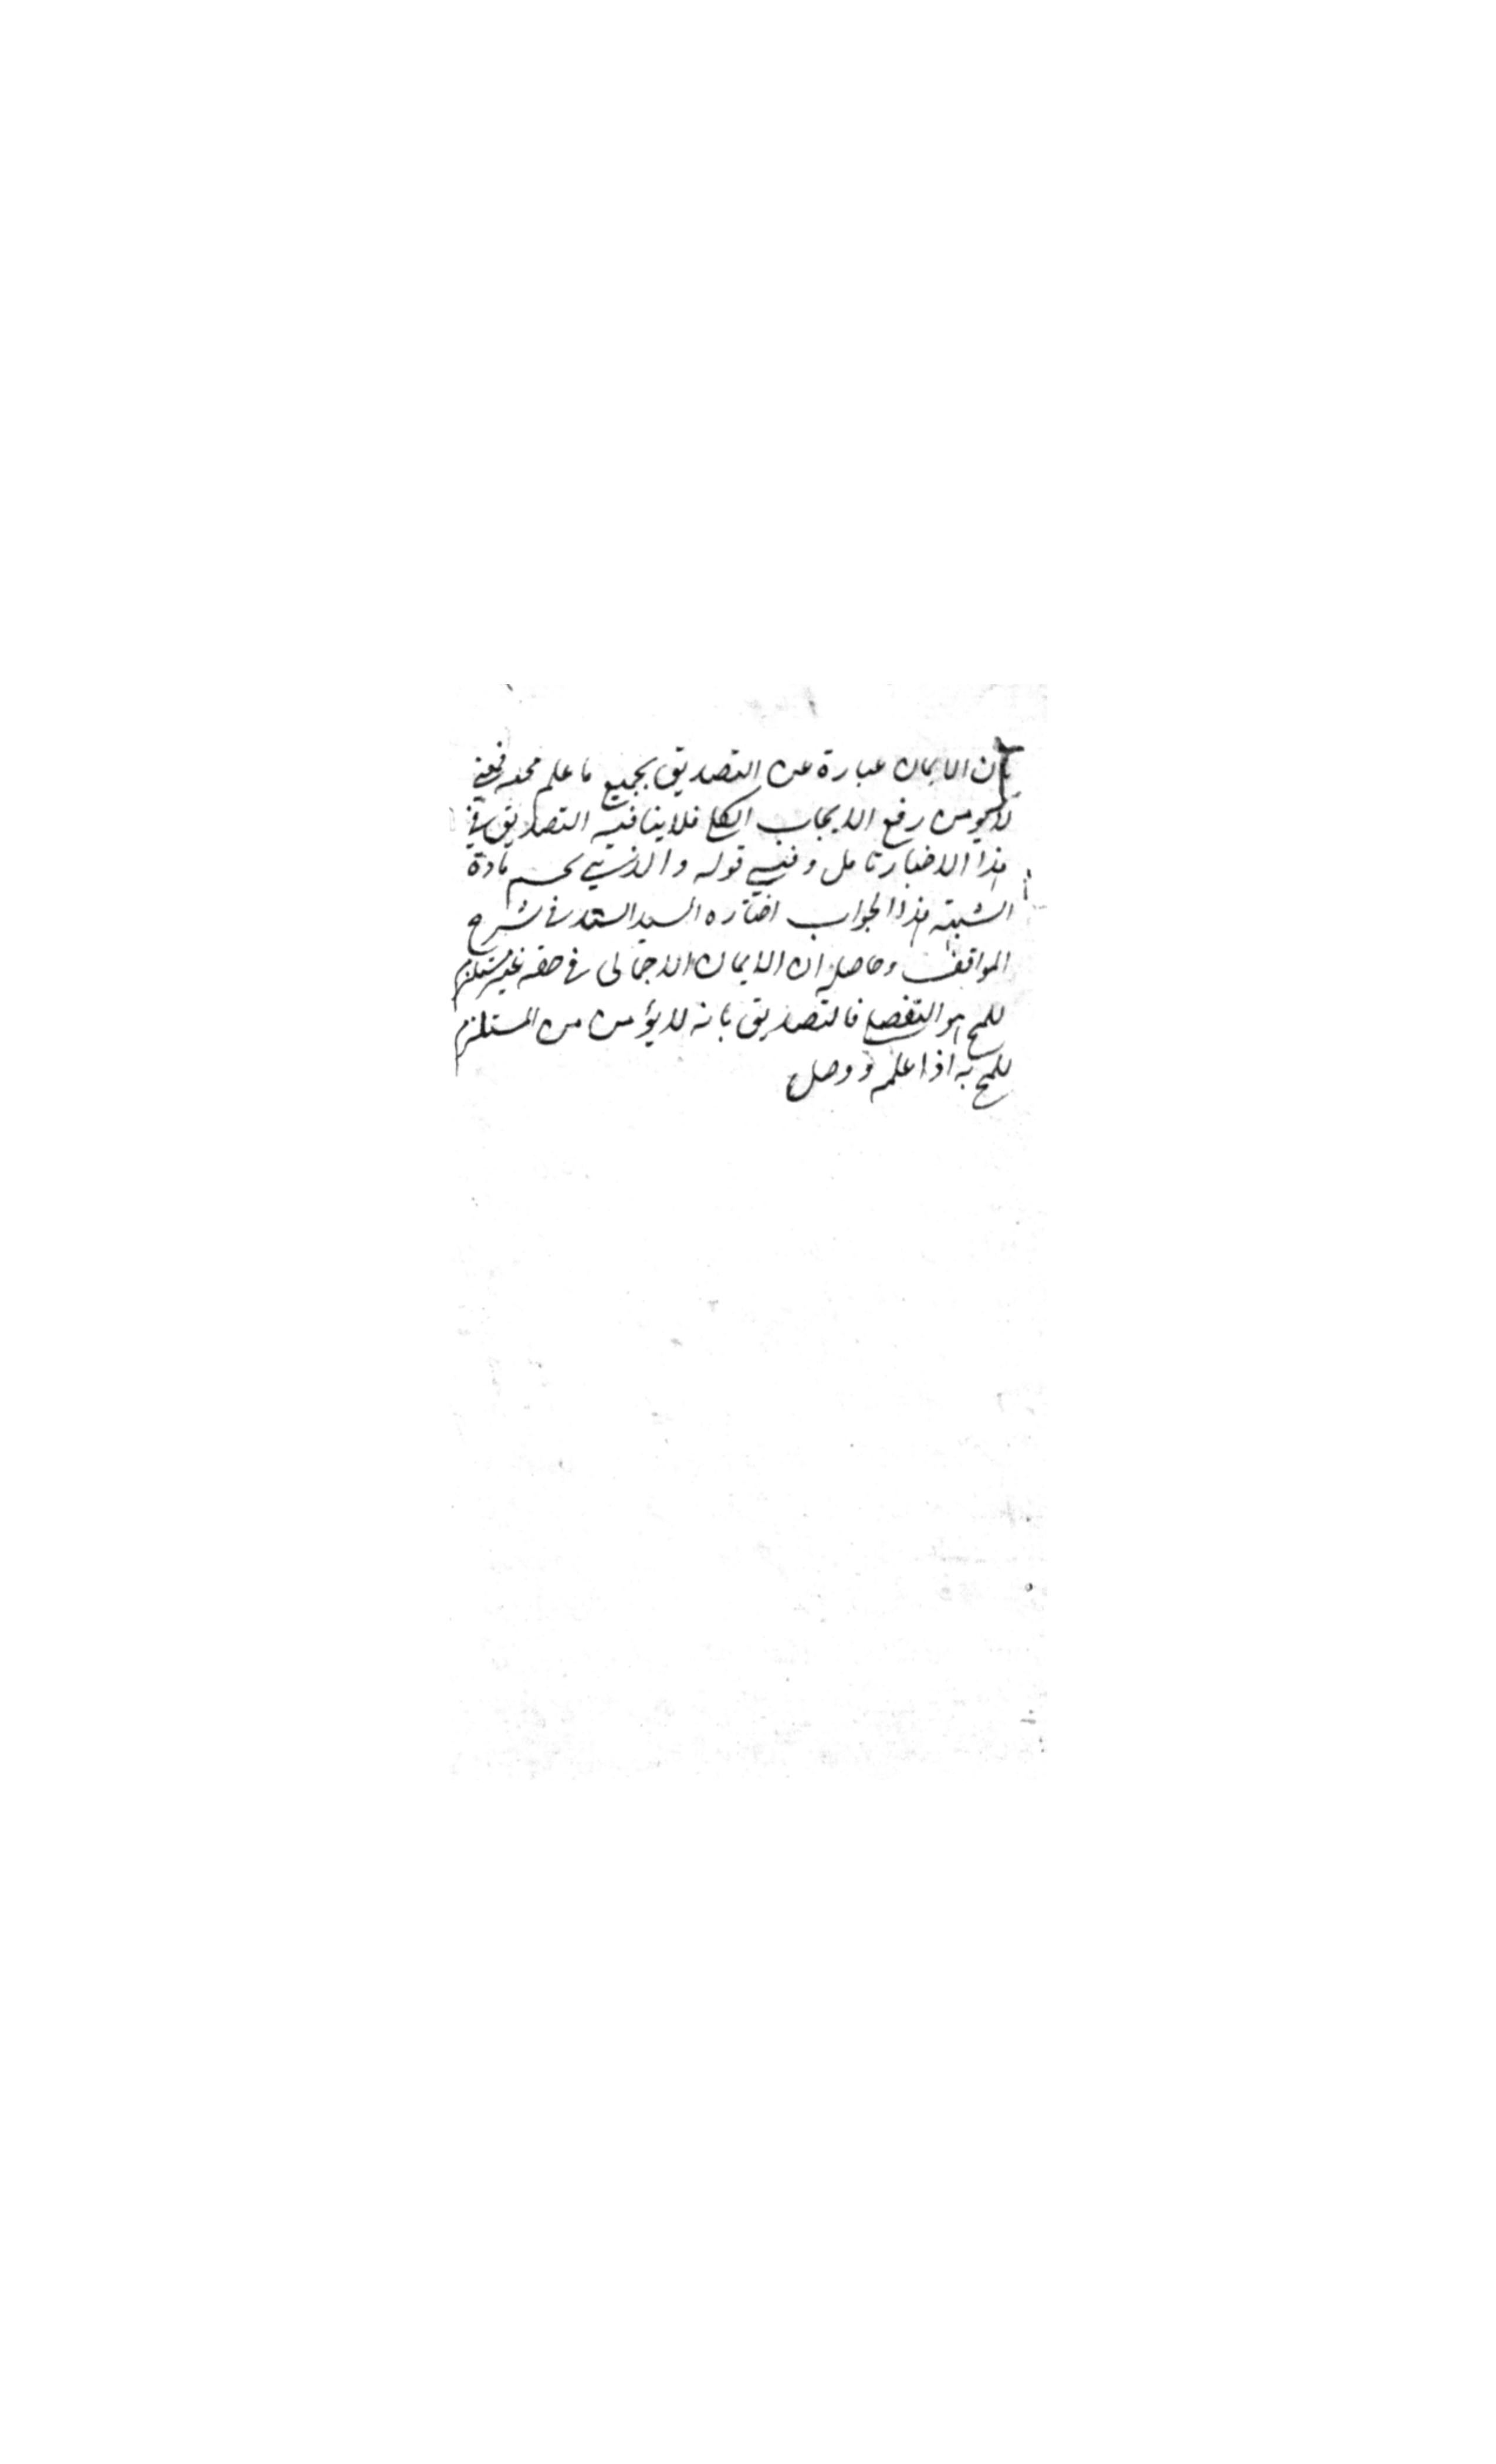 بان الايمان عبارة عن التصديق بجميع ما علم مجيئه فمعنى
لا يؤمن رفع الايجاب الكلي فلا ينافيه التصديق في
هذا الاخبار تأمل وفيه قوله والذي يحسم مادة
الشبهة هذا الجواب اختاره السيد السند في شرح
المواقف وحاصله ان الايمان الاجمالي في حقه غير مستلزم
للمح هو التفصيلي فالتصديق بانه لا يؤمن من المستلزم
للمح به اذا علمه ووصل